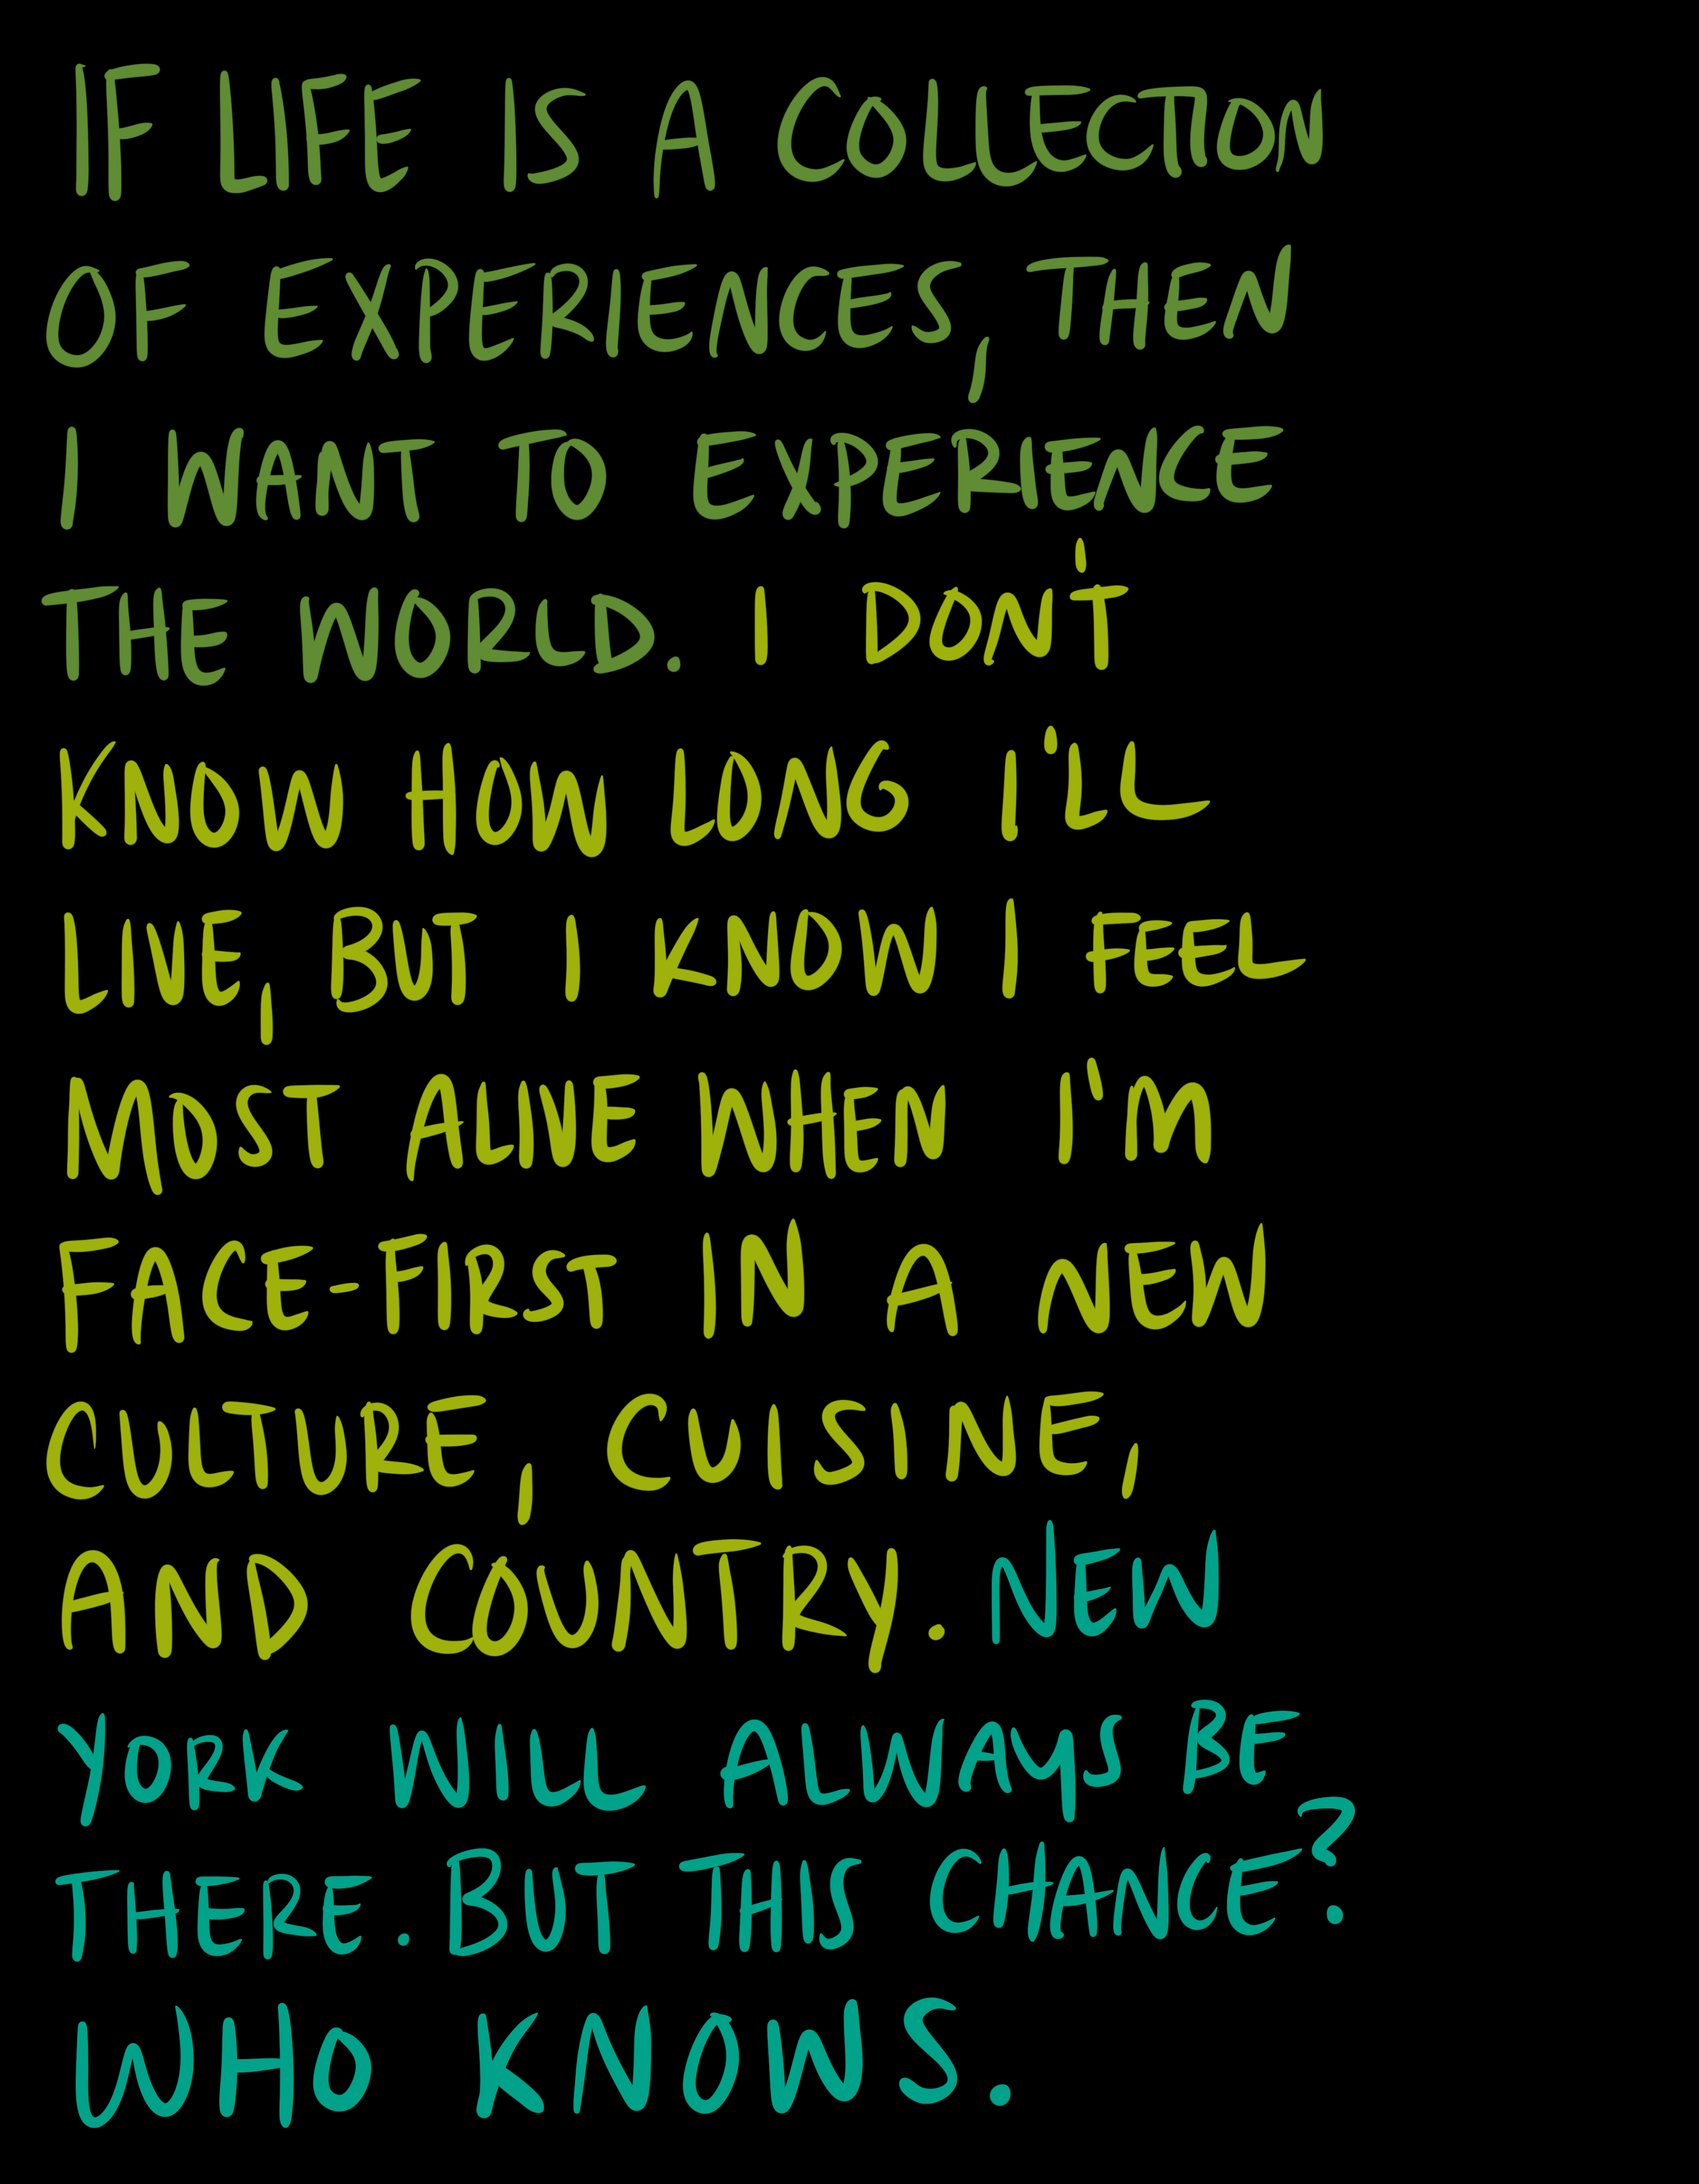 IF LIFE IS A COLLECTION
OF EXPERIENCES, THEN
I WANT TO EXPERIENCE
THE WORLD. I DON'T
KNOW HOW LONG I'LL
LIVE, BUT I KNOW I FEEL
MOST ALIVE WHEN I'M
FACE-FIRST IN A NEW
CULTURE, CUISINE,
AND COUNTRY. NEW
YORK WILL ALWAYS BE
THERE. BUT THIS CHANCE?
WHO KNOWS.